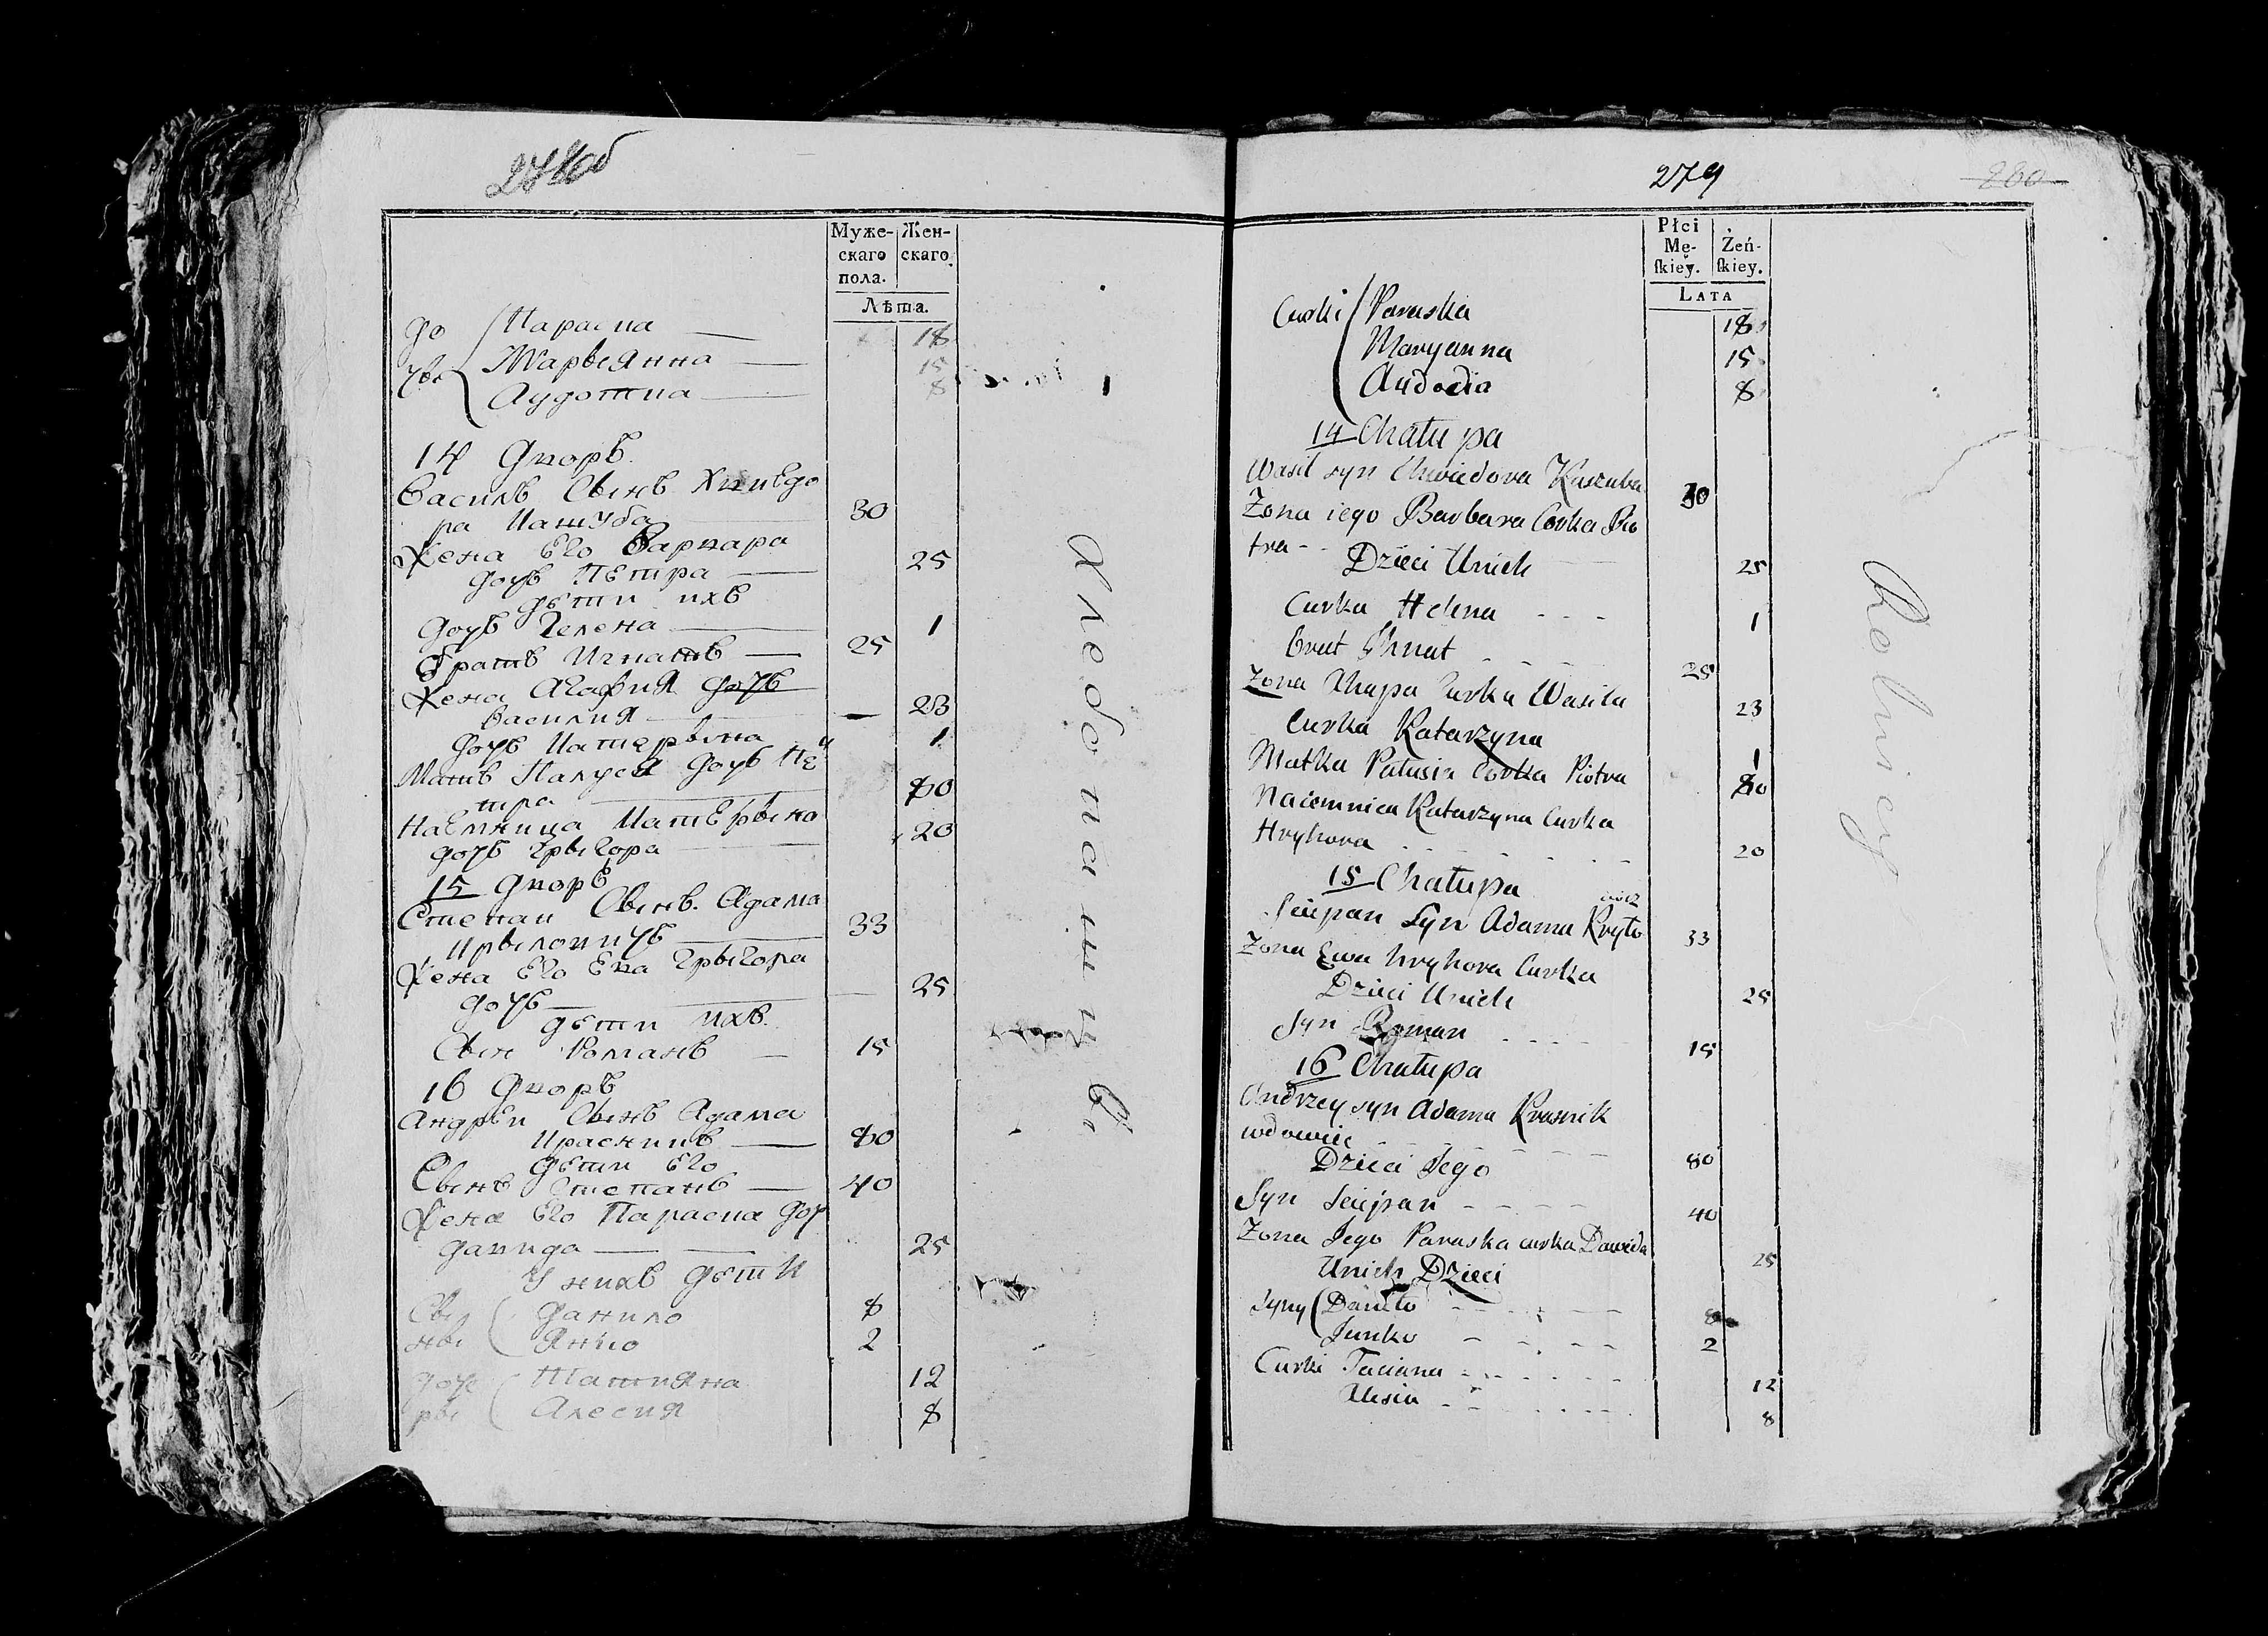 278об
Муже-
скаго
пола.
Жен-
скаго.
Лѣта.
до Параска 18
Марьянна 15
чки Аудотка 8
14 дворъ
Василь Сынъ Хвиедо
ра Кашуба 30
Жена Его Варвара
дочь Петра 25
дети ихъ
дочь Гелена 1
братъ Игнатъ 25
Жена Агафия дочь
Василия 23
дочь Катерына 1
Мать Палуся дочь Пе
тра 80
Наемница Катерына
дочь Грыгора 20
15 дворъ
Степан Сынъ Адама
Крыловичъ 33
Жена Его Ева Грыгора
дочь 25
дети ихъ
Сын Романъ 15
16 дворъ
Андрей Сынъ Адама
Красникъ 80
дети Его
Сынъ Степанъ 40
Жена Его Параска доч
давида 25
У нихъ дети
Сы Данило 8
ны Янко 2
доче Татияна 12
ри Алесия 8
Хлебопашцы
279
260
Płci
Mę-
ſkiey.
Żeń-
ſkiey.
LATA
Curki Paraska 18
Maryanna 15
Audocia 8
14 Chałupa
Wasil syn Chwiedora Kaszuba 30
Żona iego Barbara Corka Pio
tra
Dzieci Unich 25
Curka Helena 1
brat Ihnat 25
Żona Ahapa Curka Wasila 23
Curka Katarzyna 1
Matka Pałusia Corka Piotra 80
Naiemnica Katarzyna Curka
Hryhora 20
15 Chałupa
Sciepan Syn Adama Kryło wicz 33
Żona Ewa hryhora Curka 25
Dzieci Unich
Syn Roman 15
16 Chałupa
Andrzey syn Adama Krasnik
wdowiec 80
Dzieci Jego
Syn Sciepan 40
Żona Jego Paraska curka Dawida 25
Unich Dzieci
Syny Daniło 8
Janko 2
Curki Taciana 12
Alesia 8
Rolnicy